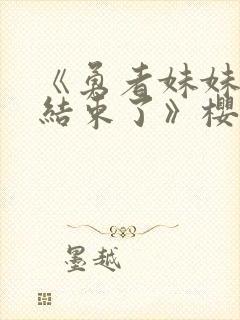 《勇者妹妹
結束了》櫻
墨越